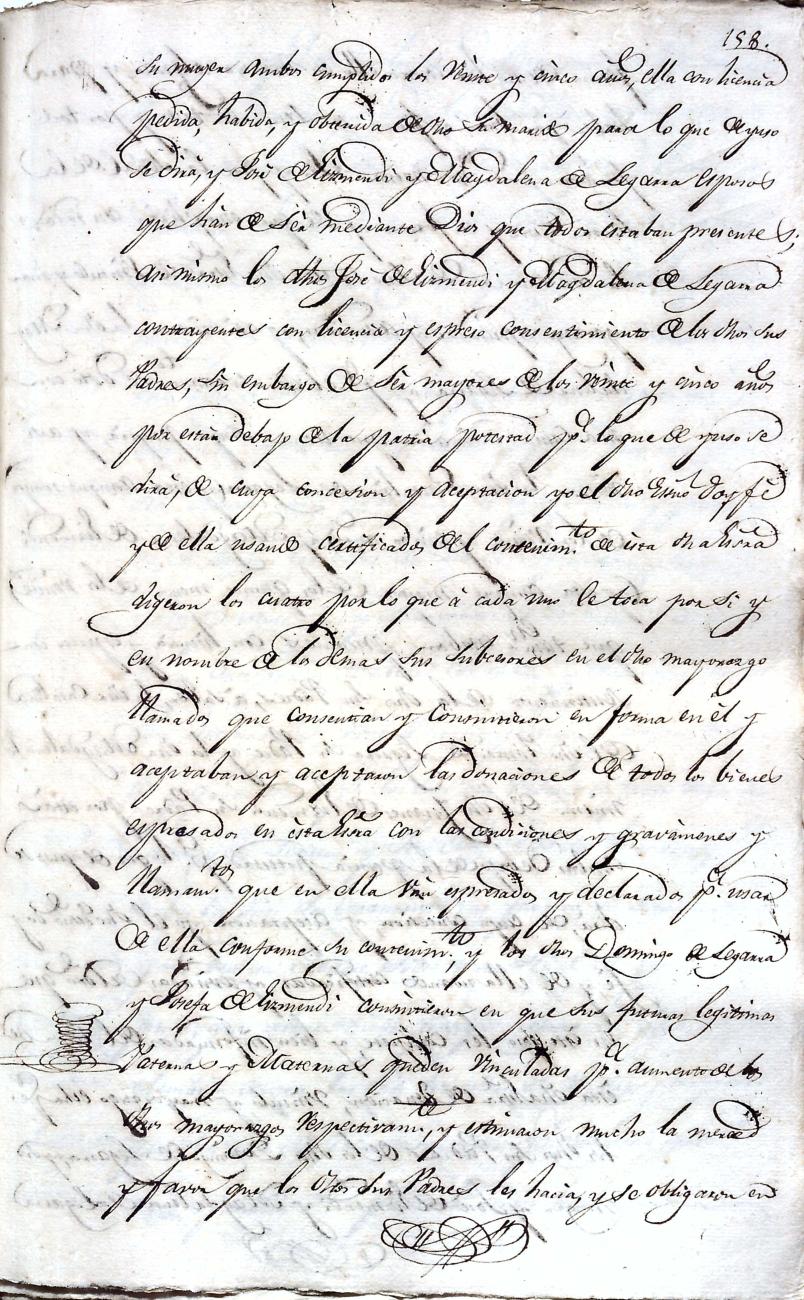 158.
su muger ambos cumplidos los veinte y cinco años, ella con licencia
pedida, habida, y obtenida de dho su marido para lo que de yuso
se dirá, y José de Eizmendi y Magdalena de Legarra esposos
que hán de sér mediante Dios que todos estaban presentes;
asi mismo los dhos José de Eizmendi y Magdalena de Legarra
contrayentes con licencia y espreso consentimiento de los dhos sus
Padres, sin embargo de sér mayores de los veinte y cinco años
por están debajo de la patria potestad pª. lo que de yuso se
dirá, de cuya concesion y aceptacion yo el dho Essno doy fé
y de ella usando certificados del contenimto. de ésta dha Essra
digeron los cuatro por lo que á cada uno le toca por si y
en nombre de los demas sus subcesores en el dho mayorazgo
llamados que consentian y consintieron en forma en él y
aceptaban y aceptaron las donaciones de todos los bienes
espresados en ésta Essra con las condiciones y gravámenes y
llamamtos. que en ella ván espresados y declarados pª. usar
de ella conforme su contenimto., y los dhos Domingo de Legarra
y Josefa de Eizmendi consintieron en que sus futuras legitimas
Paternas y Maternas queden vinculadas pª. aumento de los
dhos mayorazgos respectivamte, y estimaron mucho la merced
y favor que los dhos sus Padres les hacia, y se obligaron en